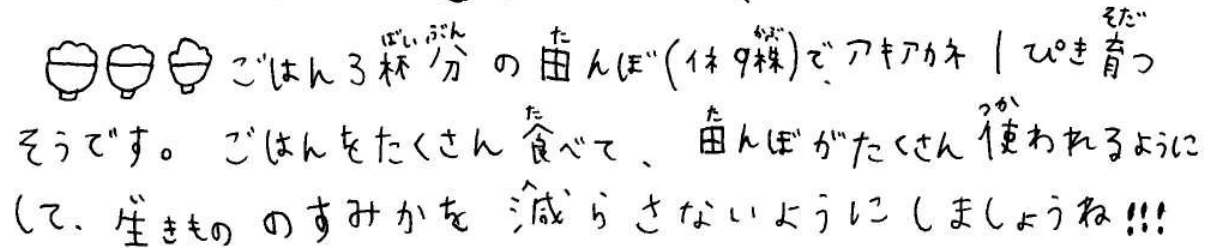 ごはん3杯分の田んぼ(休9株)で、アキアカネ1ぴき育つ
そうです。ごはんをたくさん食べて、田んぼがたくさん使われるように
して、生きもののすみかを減らさないようにしましょうね!!!